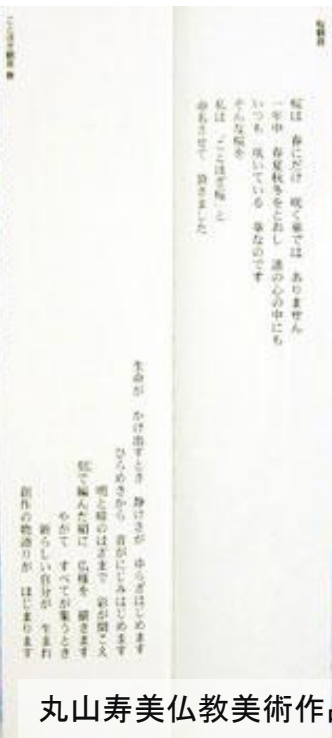 桜は 春にだけ 咲く華では ありません
一年中 春夏秋冬をとおし 誰の心の中にも
いつも 咲いている 華なのです
そんな桜を
私は 「ことほぎ桜」と
命名させて 頂きました
生命が かけ出すとき 静けさが ゆらぎはじめます
ひらめきから 音がにじみはじめます
明と暗のはざまで 彩が聞こえ
やがて すべてが集うとき
新らしい自分が 生まれ
創作の物語りが はじまります
丸山寿美仏教美術作品